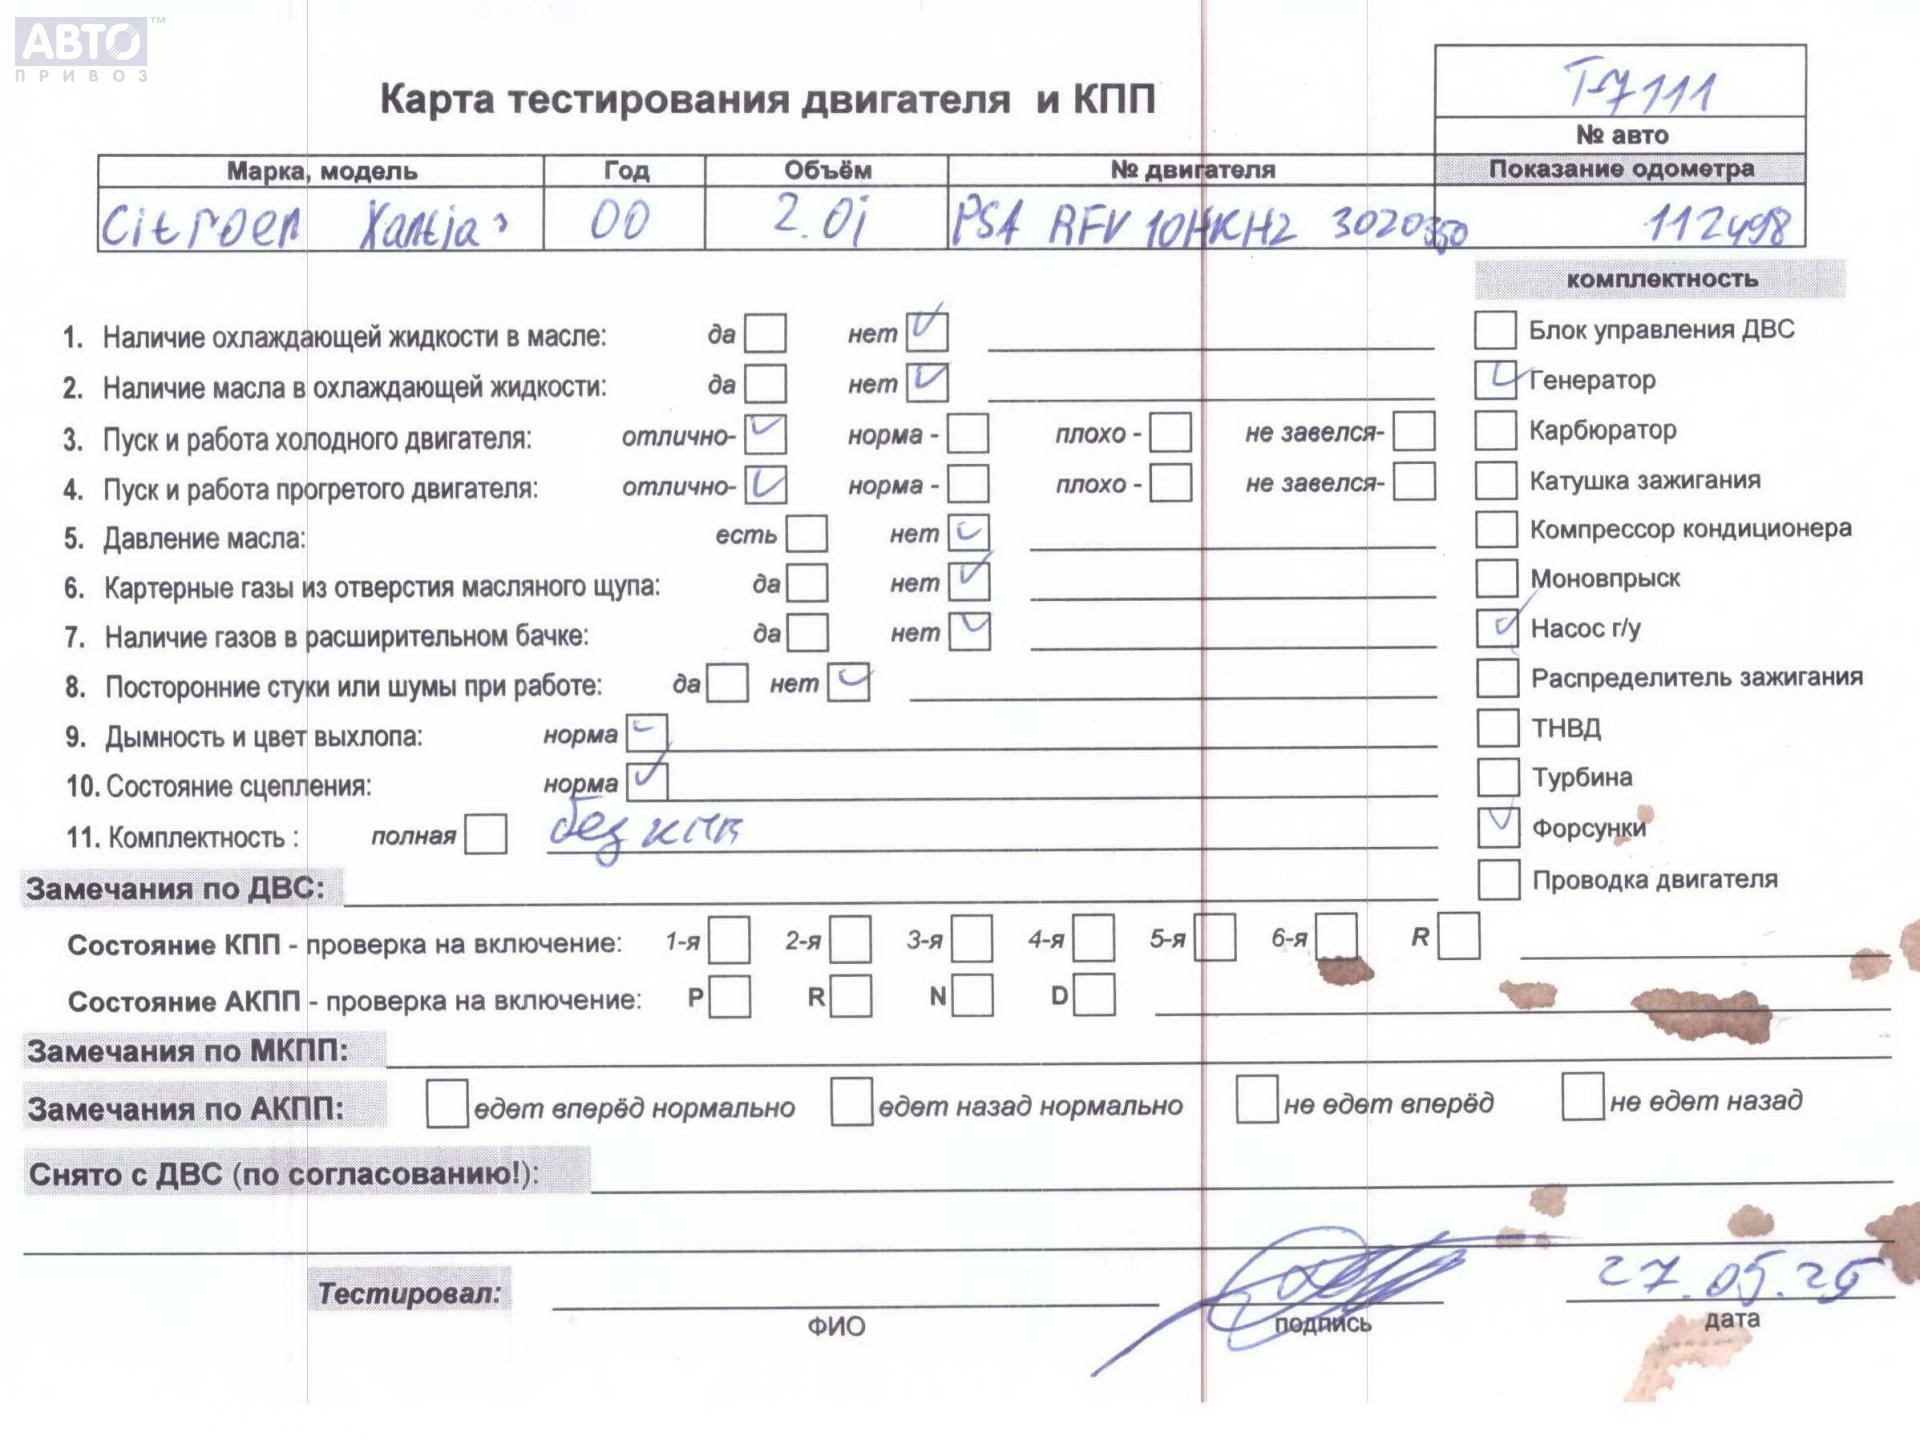 АВТО™
ПРИВОЗ
Карта тестирования двигателя и КПП
Т-7111
№ авто
Марка, модель Год Объём № двигателя Показание одометра
Citroen Xantia 00 2.0i PSA RFV 10HKH2 3020350 112498
комплектность
1. Наличие охлаждающей жидкости в масле: да нет
2. Наличие масла в охлаждающей жидкости: да нет
3. Пуск и работа холодного двигателя: отлично- норма - плохо - не завелся-
4. Пуск и работа прогретого двигателя: отлично- норма - плохо - не завелся-
5. Давление масла: есть нет
6. Картерные газы из отверстия масляного щупа: да нет
7. Наличие газов в расширительном бачке: да нет
8. Посторонние стуки или шумы при работе: да нет
9. Дымность и цвет выхлопа: норма
10. Состояние сцепления: норма
11. Комплектность : полная без кпп
Блок управления ДВС
Генератор
Карбюратор
Катушка зажигания
Компрессор кондиционера
Моновпрыск
Насос г/у
Распределитель зажигания
ТНВД
Турбина
Форсунки
Проводка двигателя
Замечания по ДВС:
Состояние КПП - проверка на включение: 1-я 2-я 3-я 4-я 5-я 6-я R
Состояние АКПП - проверка на включение: P R N D
Замечания по МКПП:
Замечания по АКПП: едет вперёд нормально едет назад нормально не едет вперёд не едет назад
Снято с ДВС (по согласованию!):
Тестировал: 27.05.25
ФИО подпись дата